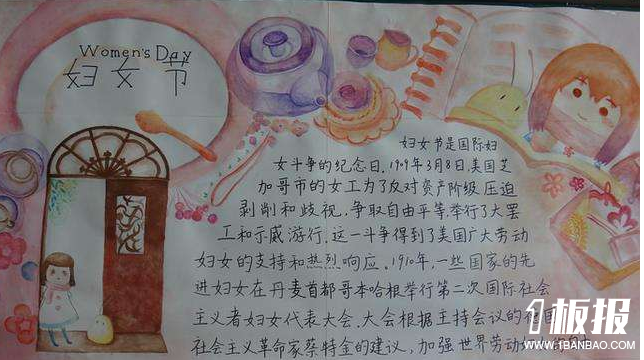 Women's Day
妇女节
妇女节是国际妇
女斗争的纪念日。1909年3月8日,美国芝
加哥市的女工为了反对资产阶级压迫
剥削和歧视,争取自由平等,举行了大罢
工和示威游行。这一斗争得到了美国广大劳动
妇女的支持和热烈响应。1910年,一些国家的先
进妇女在丹麦首都哥本哈根举行第二次国际社会
主义者妇女代表大会。大会根据主持会议的德国
社会主义革命家蔡特金的建议,加强世界劳动
1板报
WWW.1BANBAO.COM